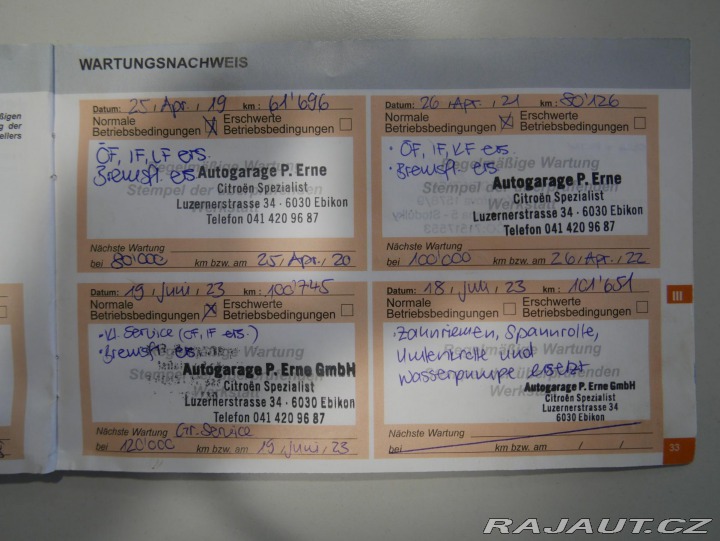 WARTUNGSNACHWEIS
Datum: 25, Apr., 19 km: 61'696
Normale Betriebsbedingungen X Erschwerte Betriebsbedingungen
ÖF, IF, LF ers.
Bremsfl. ers.
Regelmäßige Wartung
Autogarage P. Erne
Citroën Spezialist
Luzernerstrasse 34 - 6030 Ebikon
Telefon 041 420 96 87
Nächste Wartung
bei 80'000 km bzw. am 25, Apr., 20
Datum: 26, Apr., 21 km: 80'126
Normale Betriebsbedingungen X Erschwerte Betriebsbedingungen
· ÖF, IF, KF ers.
· Bremsfl. ers.
Regelmäßige Wartung
Autogarage P. Erne
Citroën Spezialist
Luzernerstrasse 34 - 6030 Ebikon
Telefon 041 420 96 87
Nächste Wartung
bei 100'000 km bzw. am 26, Apr., 22
Datum: 19, Juni, 23 km: 100'745
Normale Betriebsbedingungen X Erschwerte Betriebsbedingungen
· Kl. Service (ÖF, IF ers.)
· Bremsfl. ers.
Wartung
Autogarage P. Erne GmbH
Citroën Spezialist
Luzernerstrasse 34 - 6030 Ebikon
Telefon 041 420 96 87
Nächste Wartung Gr. Service
bei 120'000 km bzw. am 19, Juni, 23
Datum: 18, Juli, 23 km: 101'651
Normale Betriebsbedingungen Erschwerte Betriebsbedingungen
· Zahnriemen, Spannrolle,
Umlenkrolle und
Wasserpumpe ersetzt
Autogarage P. Erne GmbH
Citroën Spezialist
Luzernerstrasse 34
6030 Ebikon
Nächste Wartung
bei km bzw. am / /
III
33
RAJAUT.CZ